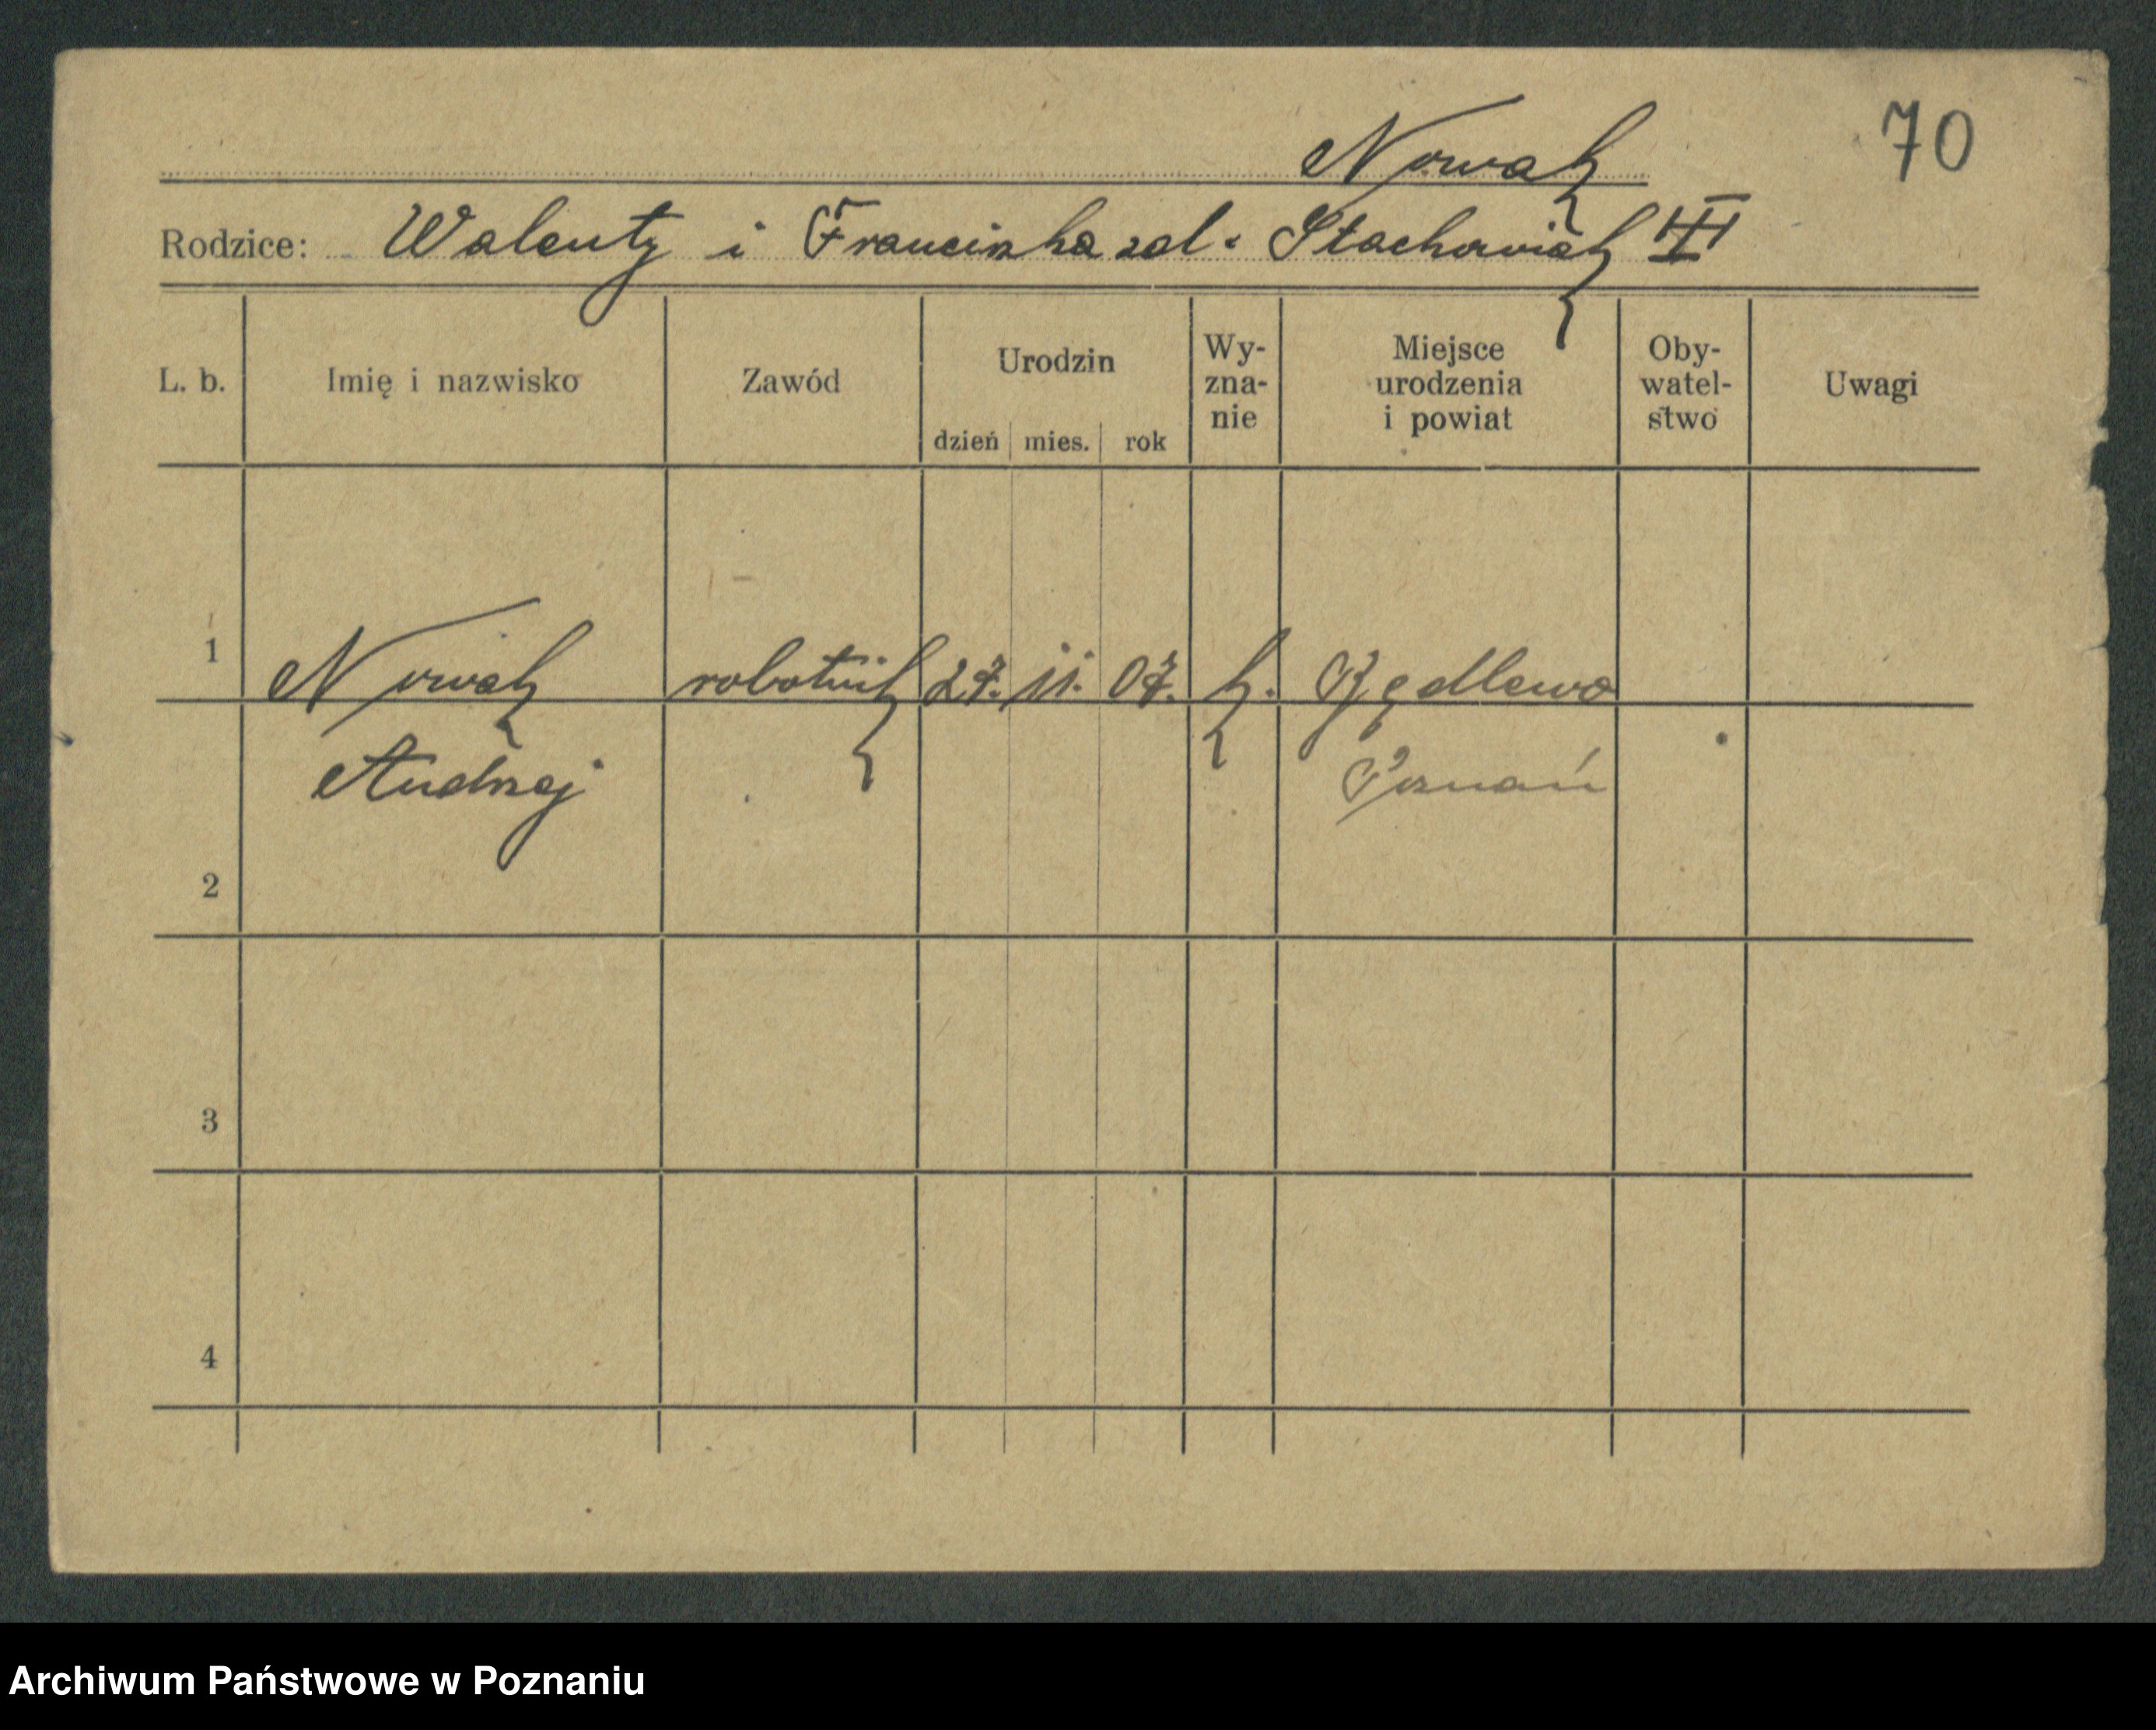 Nowak 70
Rodzice: Walenty i Franciszka zd. Stachowiak III
L. b. Imię i nazwisko Zawód Urodzin dzień mies. rok Wy-zna-nie Miejsce urodzenia i powiat Oby-watel-stwo Uwagi
1 Nowak robotnik 27. 11. 07. k.
Andrzej Poznań
2
3
4
Archiwum Państwowe w Poznaniu